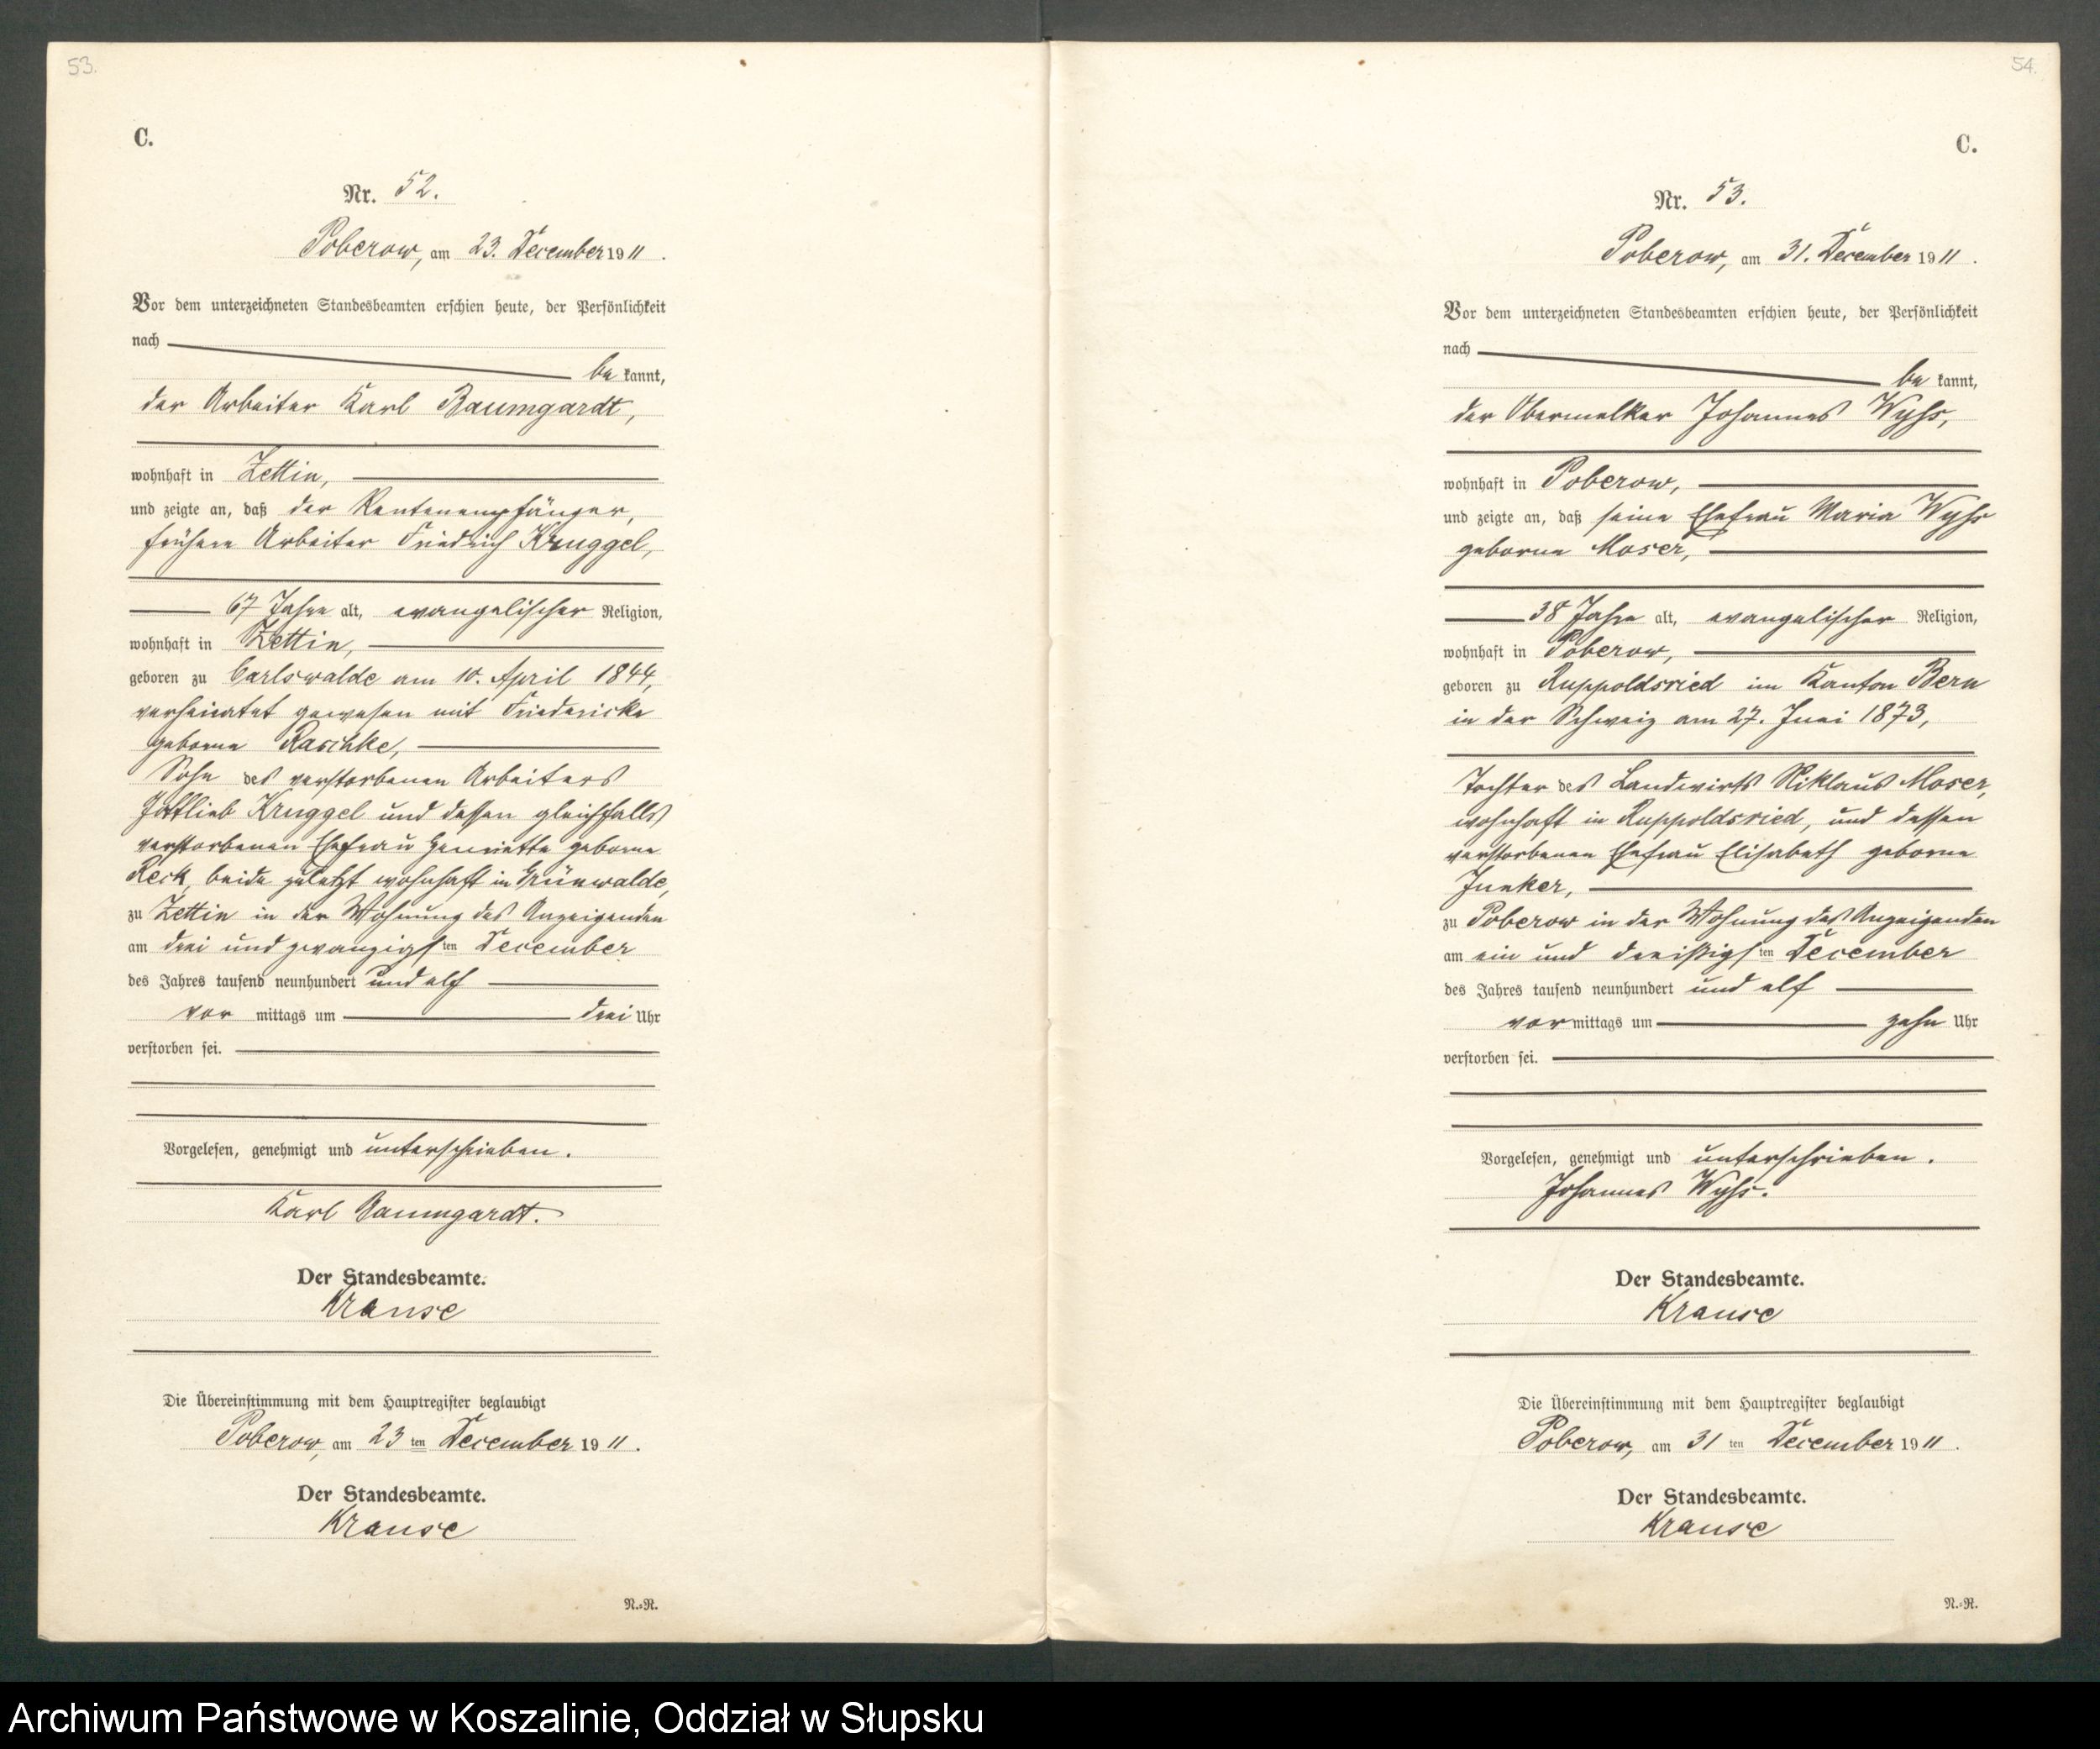 53.
C.
Nr. 52.
Poberow, am 23. December 1911.
Vor dem unterzeichneten Standesbeamten erschien heute, der Persönlichkeit
nach
be kannt,
der Arbeiter Karl Baumgardt,
wohnhaft in Zettin,
und zeigte an, daß der Rentenempfänger,
frühere Arbeiter Friedrich Kruggel,
67 Jahre alt, evangelischer Religion,
wohnhaft in Zettin,
geboren zu Carlswalde am 10. April 1844,
verheiratet gewesen mit Friedericke
geborne Raschke,
Sohn des verstorbenen Arbeiters
Gottlieb Kruggel und dessen gleichfalls
verstorbenen Ehefrau Henriette geborne
Reck, beide zuletzt wohnhaft in Grünwalde,
zu Zettin in der Wohnung des Anzeigenden
am drei und zwanzigsten December
des Jahres tausend neunhundert und elf
vor mittags um drei Uhr
verstorben sei.
Vorgelesen, genehmigt und unterschrieben.
Karl Baumgardt.
Der Standesbeamte.
Krause
Die Übereinstimmung mit dem Hauptregister beglaubigt
Poberow, am 23 ten December 1911.
Der Standesbeamte.
Krause
N.=R.
54.
C.
Nr. 53.
Poberow, am 31. December 1911.
Vor dem unterzeichneten Standesbeamten erschien heute, der Persönlichkeit
nach
be kannt,
der Obermelker Johannes Wyss,
wohnhaft in Poberow,
und zeigte an, daß seine Ehefrau Maria Wyss
geborne Moser,
38 Jahre alt, evangelischer Religion,
wohnhaft in Poberow,
geboren zu Ruppoldsried im Kanton Bern
in der Schweiz am 27. Juni 1873,
Tochter des Landwirts Niklaus Moser,
wohnhaft in Ruppoldsried, und dessen
verstorbenen Ehefrau Elisabeth geborne
Junker,
zu Poberow in der Wohnung des Anzeigenden
am ein und dreißigsten December
des Jahres tausend neunhundert und elf
vor mittags um zehn Uhr
verstorben sei.
Vorgelesen, genehmigt und unterschrieben.
Johannes Wyss.
Der Standesbeamte.
Krause
Die Übereinstimmung mit dem Hauptregister beglaubigt
Poberow, am 31 ten December 1911.
Der Standesbeamte.
Krause
N.=R.
Archiwum Państwowe w Koszalinie, Oddział w Słupsku